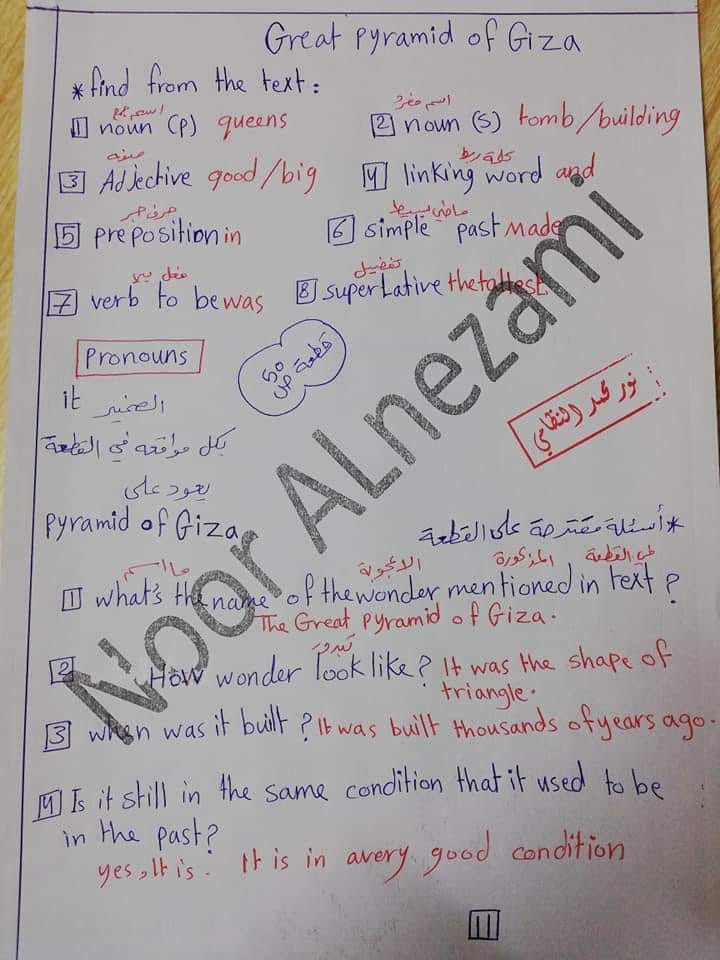 Great pyramid of Giza
* find from the text :
اسم جمع اسم مفرد
1 noun (p) queens 2 noun (s) tomb/building
صفه كلمة ربط
3 Adjective good/big 4 linking word and
حرف جر ماضي بسيط
5 preposition in 6 simple past made
فعل يكون تفضيل
7 verb to be was 8 superlative the tallest
Pronouns
قطعة ص 50
it الضمير
بكل مواقعه في القطعة
يعود على
pyramid of Giza
نور محمد النظامي
* أسئلة مقترحة على القطعة
ما اسم الاعجوبة المذكورة في القطعة
1 what's the name of the wonder mentioned in text ?
The Great pyramid of Giza.
تبدو
2 How wonder look like? It was the shape of
triangle.
3 when was it built ? It was built thousands of years ago.
4 Is it still in the same condition that it used to be
in the past?
yes, It is. It is in avery good condition
11
Noor ALnezami